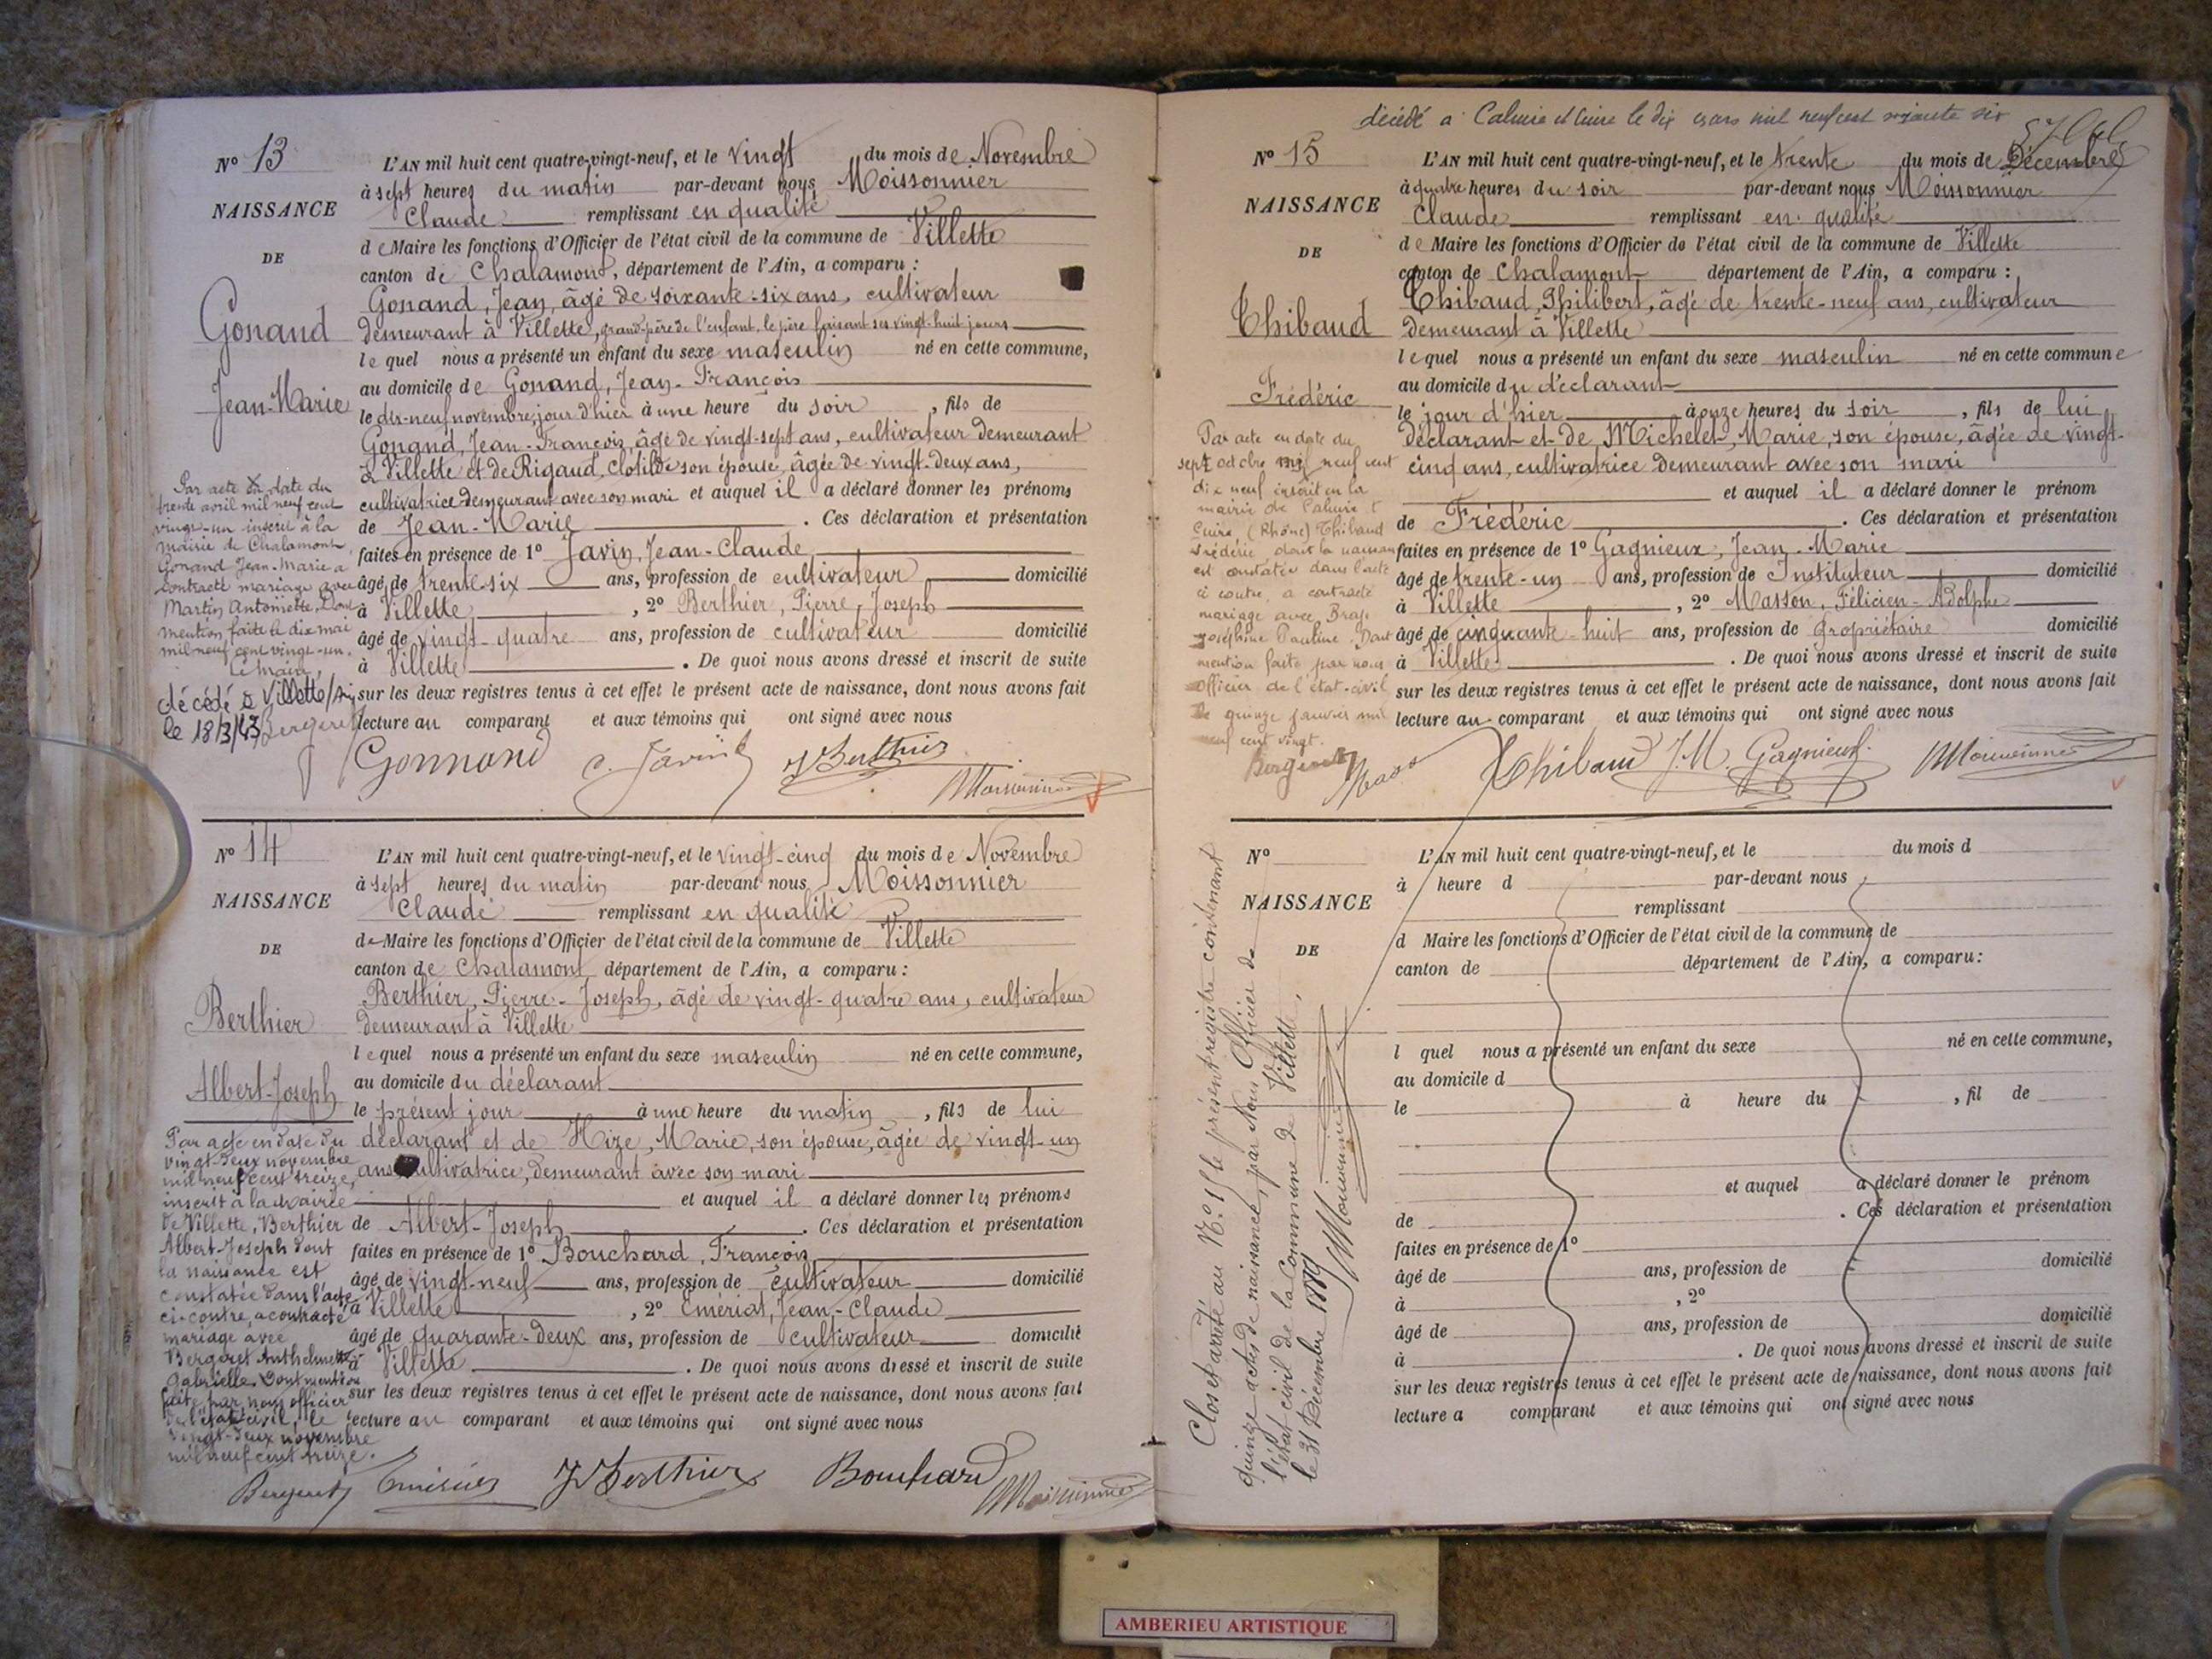 N° 13
NAISSANCE
DE
Gonand
Jean-Marie
L'AN mil huit cent quatre-vingt-neuf, et le vingt du mois de Novembre
à sept heures du matin par-devant nous Moissonnier
Claude remplissant en qualité
de Maire les fonctions d'Officier de l'état civil de la commune de Villette
canton de Chalamont, département de l'Ain, a comparu :
Gonand, Jean, âgé de soixante-six ans, cultivateur
demeurant à Villette, grand-père de l'enfant, le père faisant ses vingt-huit jours
lequel nous a présenté un enfant du sexe masculin né en cette commune,
au domicile de Gonand, Jean-François
le dix-neuf novembre, jour d'hier à une heure du soir, fils de
Gonand, Jean-François, âgé de vingt-sept ans, cultivateur demeurant
à Villette et de Rigaud, Clotilde son épouse, âgée de vingt-deux ans,
cultivatrice demeurant avec son mari et auquel il a déclaré donner les prénoms
de Jean-Marie. Ces déclaration et présentation
faites en présence de 1° Javin, Jean-Claude
âgé de trente-six ans, profession de cultivateur domicilié
à Villette, 2° Berthier, Pierre, Joseph
âgé de vingt-quatre ans, profession de cultivateur domicilié
à Villette. De quoi nous avons dressé et inscrit de suite
sur les deux registres tenus à cet effet le présent acte de naissance, dont nous avons fait
lecture au comparant et aux témoins qui ont signé avec nous
Gonnand C. Javin J Berthier Moissonnier
Par acte en date du
trente avril mil neuf cent
vingt-un inscrit à la
mairie de Chalamont
Gonand Jean-Marie a
contracté mariage avec
Martin Antoinette, Dont
mention faite le dix mai
mil neuf cent vingt-un.
Le Maire,
Bergeret
décédé à Villette/Ain
le 18/3/43
N° 14
NAISSANCE
DE
Berthier
Albert-Joseph
L'AN mil huit cent quatre-vingt-neuf, et le vingt-cinq du mois de Novembre
à sept heures du matin par-devant nous Moissonnier
Claude remplissant en qualité
de Maire les fonctions d'Officier de l'état civil de la commune de Villette
canton de Chalamont département de l'Ain, a comparu :
Berthier, Pierre-Joseph, âgé de vingt-quatre ans, cultivateur
demeurant à Villette
lequel nous a présenté un enfant du sexe masculin né en cette commune,
au domicile du déclarant
le présent jour à une heure du matin, fils de lui
déclarant et de Hize, Marie, son épouse, âgée de vingt-un
ans cultivatrice, demeurant avec son mari
et auquel il a déclaré donner les prénoms
de Albert-Joseph. Ces déclaration et présentation
faites en présence de 1° Bouchard, François
âgé de vingt-neuf ans, profession de cultivateur domicilié
à Villette, 2° Emériat, Jean-Claude
âgé de quarante-deux ans, profession de cultivateur domicilié
à Villette. De quoi nous avons dressé et inscrit de suite
sur les deux registres tenus à cet effet le présent acte de naissance, dont nous avons fait
lecture au comparant et aux témoins qui ont signé avec nous
Par acte en date du
vingt-deux novembre
mil neuf cent treize,
inscrit à la Mairie
de Villette, Berthier
Albert-Joseph dont
la naissance est
constatée dans l'acte
ci-contre, a contracté
mariage avec
Bergeret Anthelmette
Gabrielle. Dont mention
faite par nous officier
de l'état civil, le
vingt-deux novembre
mil neuf cent treize.
Bergeret J Berthier Bouchard Moissonnier
décédé à Caluire et Cuire le dix mars mil neuf cent soixante six
N° 15
NAISSANCE
DE
Thibaud
Frédéric
L'AN mil huit cent quatre-vingt-neuf, et le trente du mois de Décembre
à quatre heures du soir par-devant nous Moissonnier
Claude remplissant en qualité
de Maire les fonctions d'Officier de l'état civil de la commune de Villette
canton de Chalamont département de l'Ain, a comparu :
Thibaud, Philibert, âgé de trente-neuf ans, cultivateur
demeurant à Villette
lequel nous a présenté un enfant du sexe masculin né en cette commune
au domicile du déclarant
le jour d'hier à onze heures du soir, fils de lui
déclarant et de Michelet, Marie, son épouse, âgée de vingt-
cinq ans, cultivatrice demeurant avec son mari
et auquel il a déclaré donner le prénom
de Frédéric. Ces déclaration et présentation
faites en présence de 1° Gagnieux, Jean-Marie
âgé de trente-un ans, profession de Instituteur domicilié
à Villette, 2° Masson, Félicien-Adolphe
âgé de cinquante-huit ans, profession de propriétaire domicilié
à Villette. De quoi nous avons dressé et inscrit de suite
sur les deux registres tenus à cet effet le présent acte de naissance, dont nous avons fait
lecture au comparant et aux témoins qui ont signé avec nous
Thibaud J M. Gagnieux. Moissonnier
Par acte en date du
sept octobre mil neuf cent
dix neuf inscrit en la
mairie de Caluire et
Cuire (Rhône) Thibaud
Frédéric dont la naissance
est constatée dans l'acte
ci contre, a contracté
mariage avec
Joséphine Pauline. Dont
mention faite par nous
Officier de l'état-civil
le quinze janvier mil
neuf cent vingt.
Bergeret
N°
NAISSANCE
DE
L'AN mil huit cent quatre-vingt-neuf, et le du mois d
à heure d par-devant nous
remplissant
d Maire les fonctions d'Officier de l'état civil de la commune de
canton de département de l'Ain, a comparu :
l quel nous a présenté un enfant du sexe né en cette commune,
au domicile d
le à heure du , fil de
et auquel a déclaré donner le prénom
de . Ces déclaration et présentation
faites en présence de 1°
âgé de ans, profession de domicilié
à , 2°
âgé de ans, profession de domicilié
à . De quoi nous avons dressé et inscrit de suite
sur les deux registres tenus à cet effet le présent acte de naissance, dont nous avons fait
lecture a comparant et aux témoins qui ont signé avec nous
Clos et arrêté au N° 15 le présent registre contenant
quinze actes de naissance, par Nous Officier de
l'état civil de la Commune de Villette,
le 31 Décembre 1889
Moissonnier
AMBERIEU ARTISTIQUE